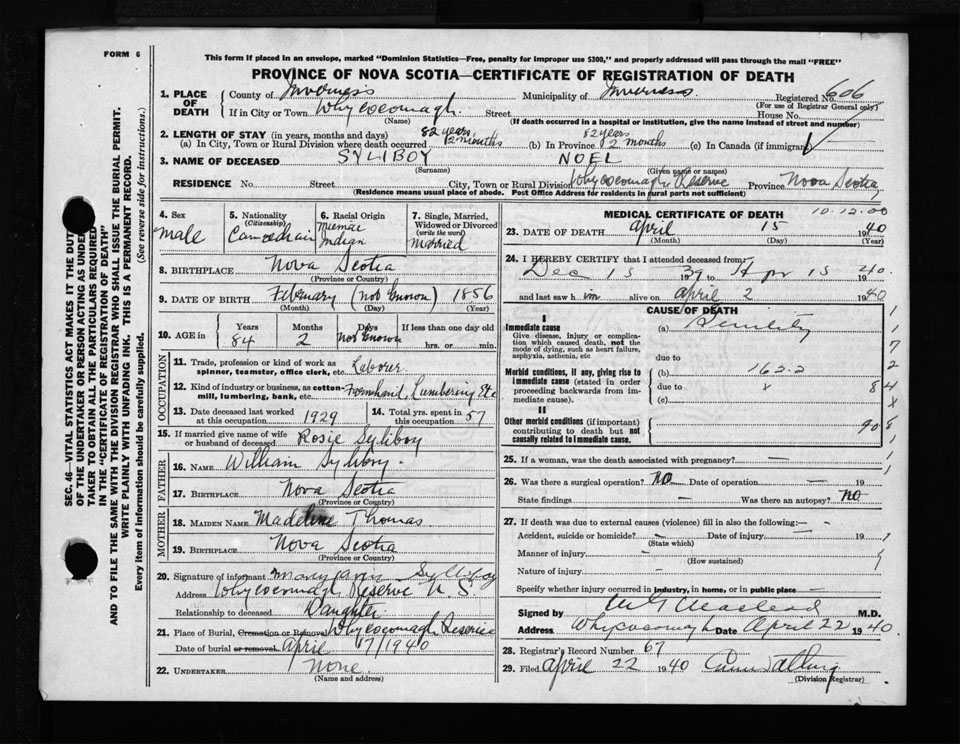 FORM 6
This form if placed in an envelope, marked "Dominion Statistics—Free, penalty for improper use $300," and properly addressed will pass through the mail "FREE"
PROVINCE OF NOVA SCOTIA—CERTIFICATE OF REGISTRATION OF DEATH
1. PLACE OF DEATH County of Inverness Municipality of Inverness Registered No. 606
(For use of Registrar General only)
If in City or Town Whycocomagh Street House No.
(Name) (If death occurred in a hospital or institution, give the name instead of street and number)
2. LENGTH OF STAY (in years, months and days)
(a) In City, Town or Rural Division where death occurred 82 years 2 months (b) In Province 82 years 2 months (c) In Canada (if immigrant)
3. NAME OF DECEASED SYLIBOY NOEL
(Surname) (Given name or names)
RESIDENCE No. Street City, Town or Rural Division Whycocomagh Reserve Province Nova Scotia
(Residence means usual place of abode. Post Office Address for residents in rural parts not sufficient)
4. Sex male
5. Nationality (Citizenship) Canadian
6. Racial Origin Micmac Indian
7. Single, Married, Widowed or Divorced (write the word) Married
8. BIRTHPLACE Nova Scotia
(Province or Country)
9. DATE OF BIRTH February (not known) 1856
(Month) (Day) (Year)
10. AGE in Years 84 Months 2 Days Not Known If less than one day hrs. or min.
OCCUPATION
11. Trade, profession or kind of work as spinner, teamster, office clerk, etc. Laborer
12. Kind of industry or business, as cotton-mill, lumbering, bank, etc. Farmhand, Lumbering Etc
13. Date deceased last worked at this occupation 1929
14. Total yrs. spent in this occupation 57
15. If married give name of wife or husband of deceased Rosie Syliboy
FATHER
16. NAME William Syliboy
17. BIRTHPLACE Nova Scotia
(Province or Country)
MOTHER
18. MAIDEN NAME Madeline Thomas
19. BIRTHPLACE Nova Scotia
(Province or Country)
20. Signature of informant Mary Ann Sylliboy
Address Whycocomagh Reserve N.S.
Relationship to deceased Daughter
21. Place of Burial, Cremation or Removal Whycocomagh Reserve
Date of burial or removal April 17/1940
22. UNDERTAKER None
(Name and address)
MEDICAL CERTIFICATE OF DEATH 10.12.00
23. DATE OF DEATH April 15 1940
(Month) (Day) (Year)
24. I HEREBY CERTIFY that I attended deceased from:
Dec 15 39 to Apr 15 40
and last saw him alive on April 2 1940
CAUSE OF DEATH
I
Immediate cause (a) Senility
Give disease, injury or complication which caused death, not the mode of dying, such as heart failure, asphyxia, asthenia, etc.
due to
Morbid conditions, if any, giving rise to immediate cause (stated in order proceeding backwards from immediate cause). (b) 162.2
due to x
(c)
II
Other morbid conditions (if important) contributing to death but not causally related to immediate cause.
25. If a woman, was the death associated with pregnancy? —
26. Was there a surgical operation? No Date of operation — 19
State findings — Was there an autopsy? No
27. If death was due to external causes (violence) fill in also the following:—
Accident, suicide or homicide? — Date of injury — 19
(State which)
Manner of injury —
(How sustained)
Nature of injury —
Specify whether injury occurred in industry, in home, or in public place —
Signed by M G Macleod M.D.
Address Whycocomagh Date April 22 1940
28. Registrar's Record Number 67
29. Filed April 22 1940
(Division Registrar)
SEC. 46—VITAL STATISTICS ACT MAKES IT THE DUTY
OF THE UNDERTAKER OR PERSON ACTING AS UNDER
TAKER TO OBTAIN ALL THE PARTICULARS REQUIRED
IN THE "CERTIFICATE OF REGISTRATION OF DEATH"
AND TO FILE THE SAME WITH THE DIVISION REGISTRAR WHO SHALL ISSUE THE BURIAL PERMIT.
WRITE PLAINLY WITH UNFADING INK. THIS IS A PERMANENT RECORD.
Every item of information should be carefully supplied. (See reverse side for instructions.)